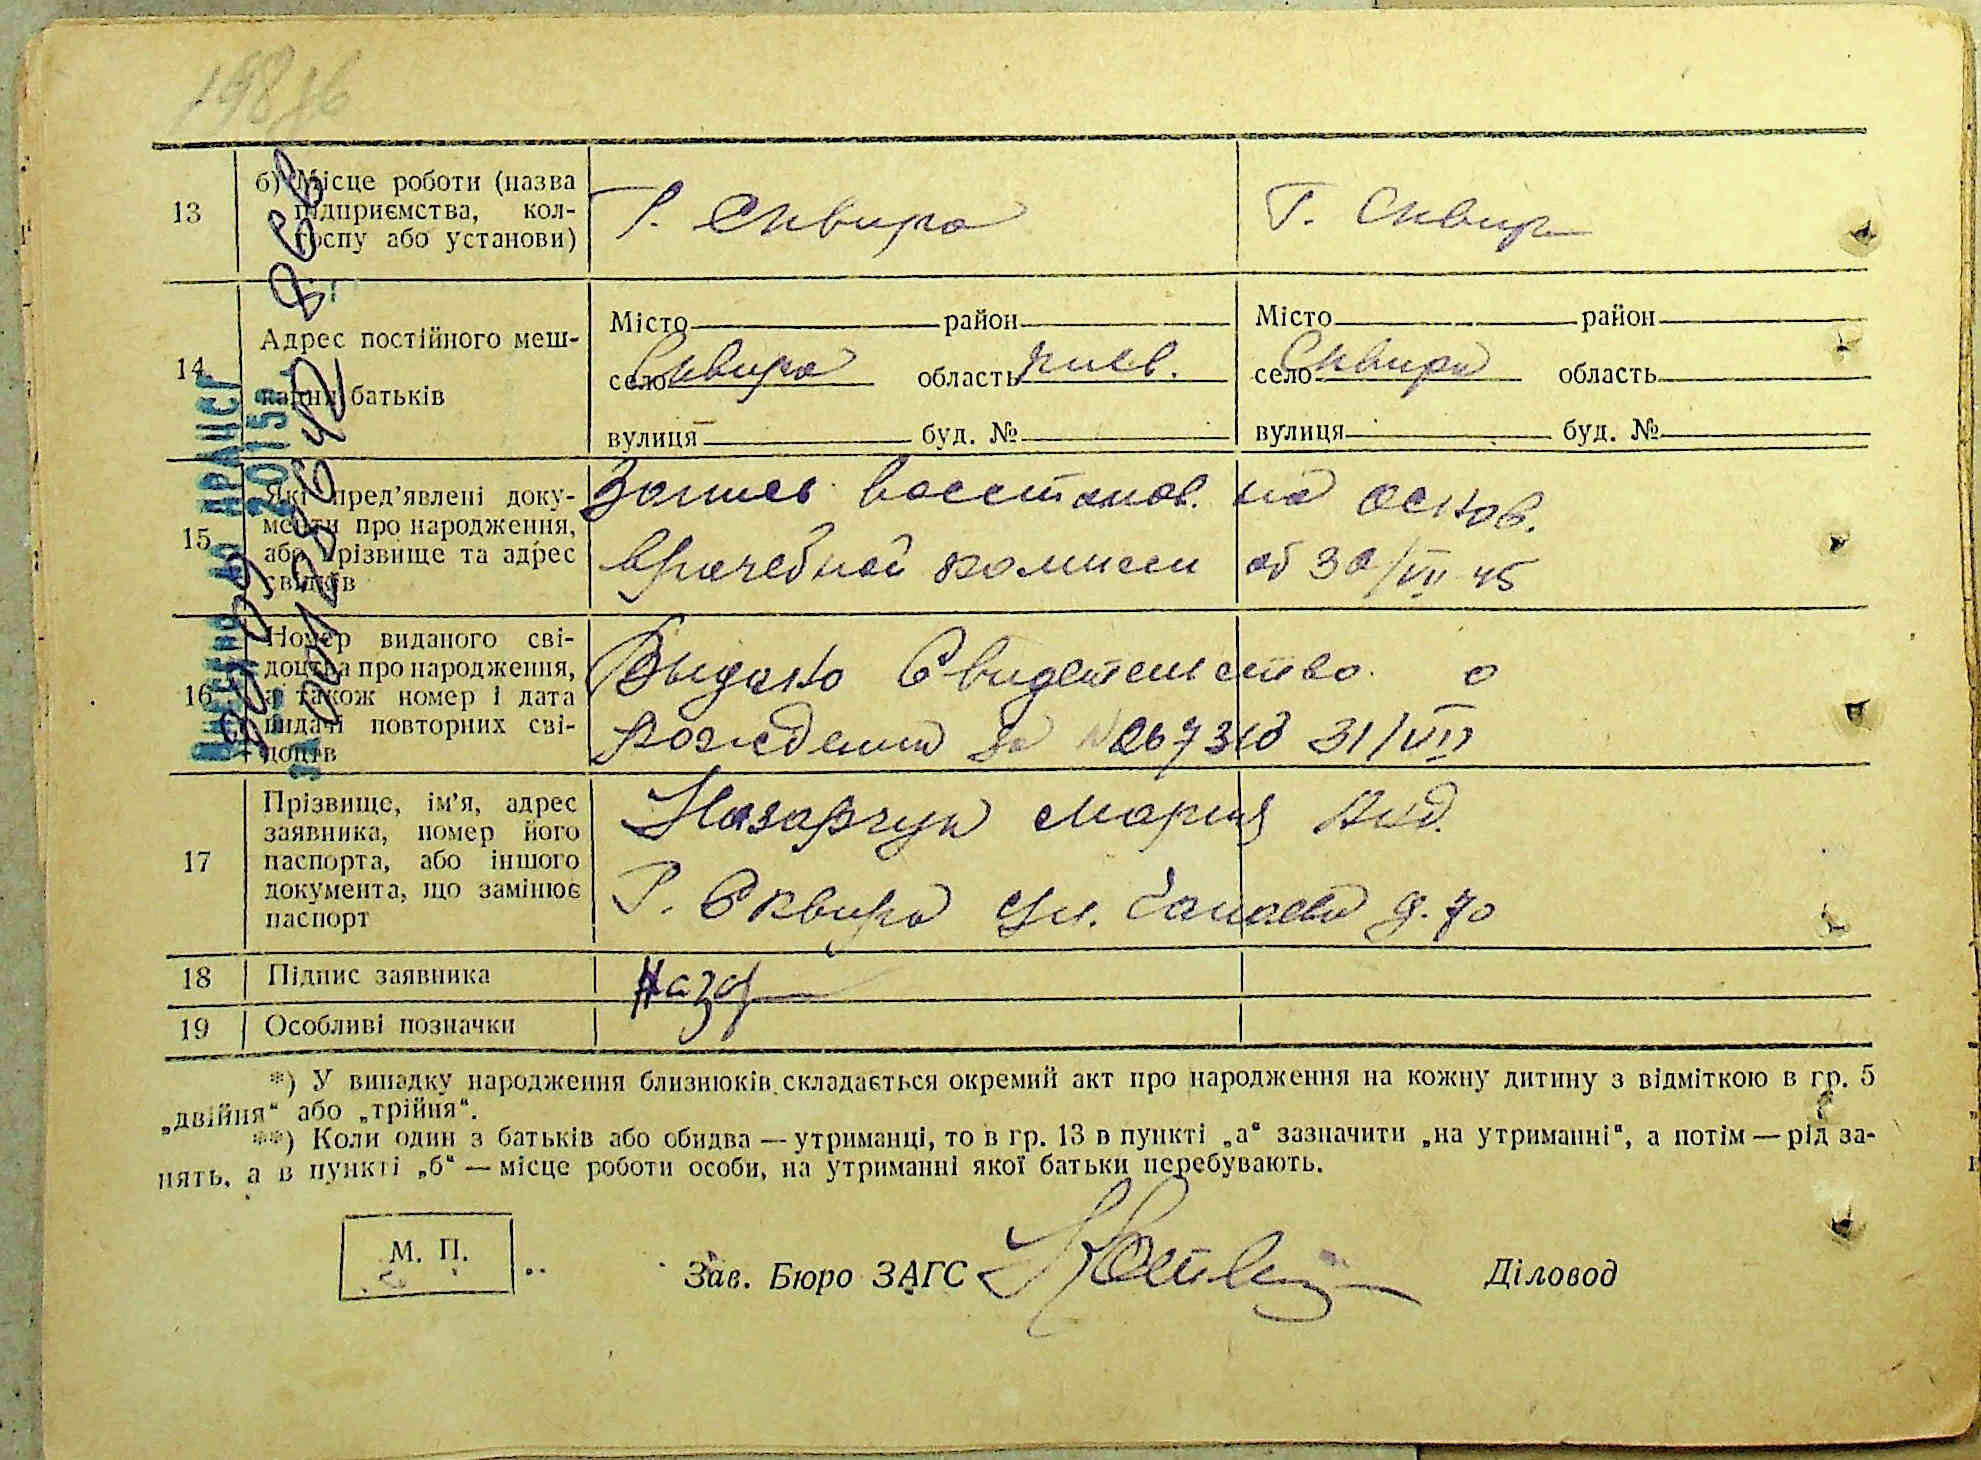 13
б) Місце роботи (назва
підприємства, кол-
госпу або установи)
Г. Сквира
Г. Сквир
14
Адрес постійного меш-
кання батьків
Місто район
село Сквира область Киев.
вулиця буд. №
Місто район
село Сквира область
вулиця буд. №
15
Які пред’явлені доку-
менти про народження,
або прізвище та адрес
свідків
Запись восстанов. на основ.
врачебной комиссии от 30/VII 45
16
Номер виданого сві-
доцтва про народження,
а також номер і дата
видачі повторних сві-
доцтв
Выдано Свидетельство о
рождении за № 31/VII
17
Прізвище, ім’я, адрес
заявника, номер його
паспорта, або іншого
документа, що замінює
паспорт
Назарчук Мария Анд.
Г. Сквира ул. Чапаева д. 70
18
Підпис заявника
Назар
19
Особливі позначки
*) У випадку народження близнюків складається окремий акт про народження на кожну дитину з відміткою в гр. 5
„двійня“ або „трійня“.
**) Коли один з батьків або обидва — утриманці, то в гр. 13 в пункті „а“ зазначити „на утриманні“, а потім — рід за-
нять, а в пункті „б“ — місце роботи особи, на утриманні якої батьки перебувають.
М. П.
Зав. Бюро ЗАГС
Діловод